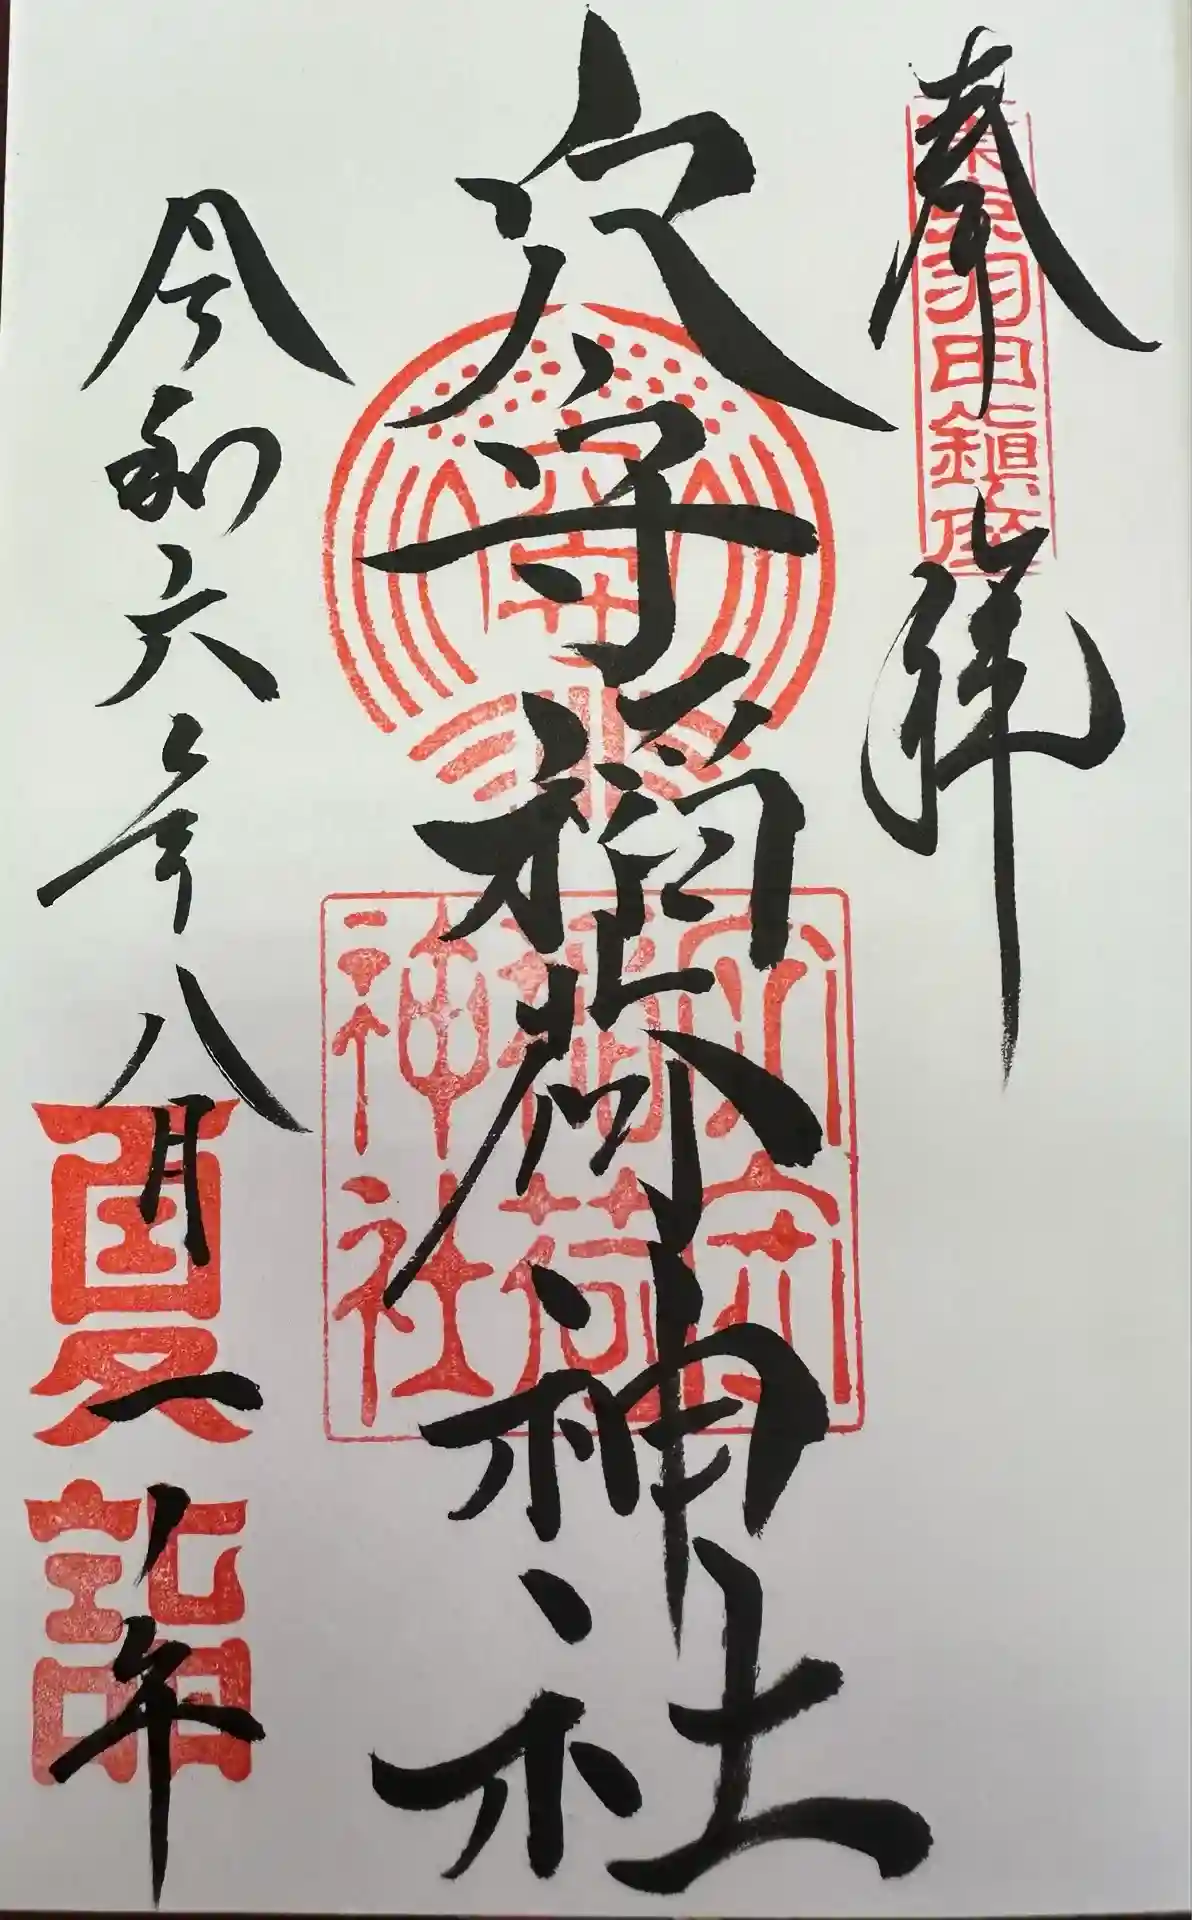 奉拝
東京羽田鎮座
穴守稲荷神社
穴守
稲荷
神社
令和六年八月一ノ午
夏詣